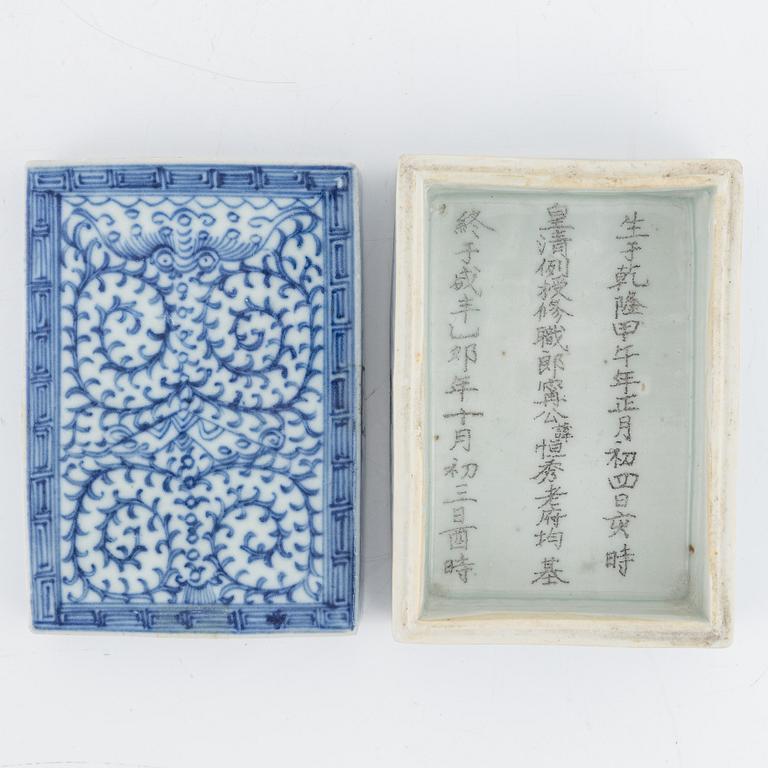 生于乾隆甲午年正月初四日亥時
皇清例授修職郎甯公諱恒秀老府均墓
終于咸丰乙卯年十月初三日酉時